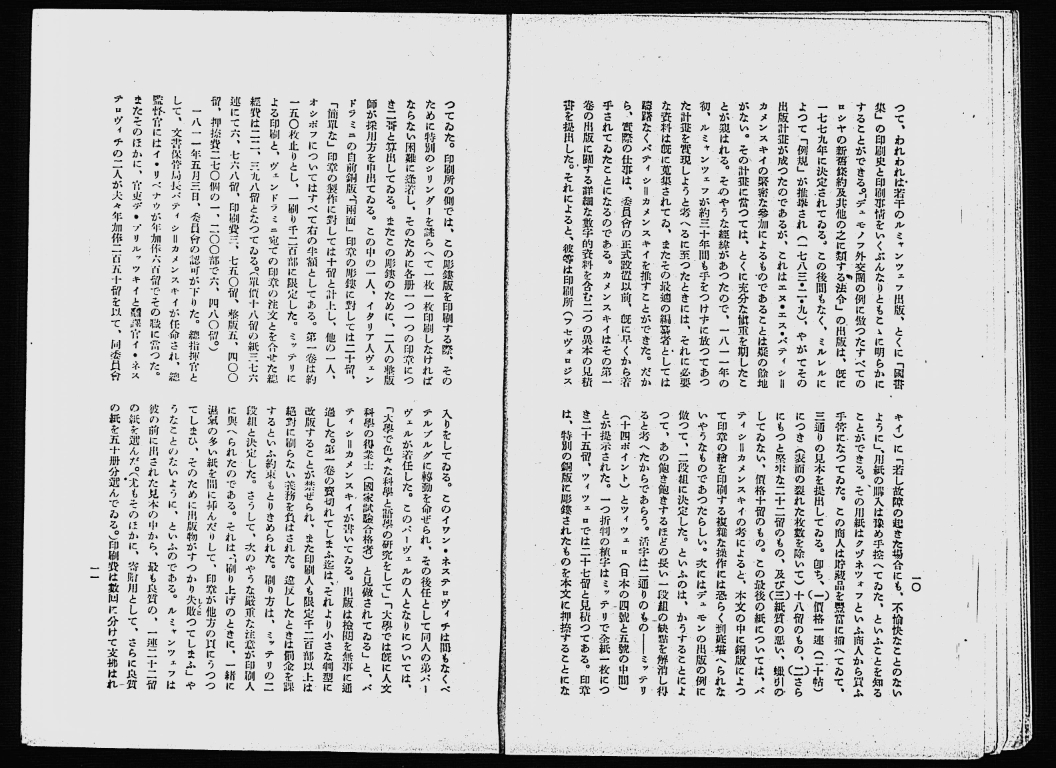 つて、われわれは若干のルミャンツェフ出版、とくに「國書
集」の印刷史と印刷事情をいくぶんなりともこゝに明らかに
することができる。「デュモノフ外交關の例に傚つたすべての
ロシヤの新舊條約及其他の之に類する法令」の出版は、旣に
一七七九年に決定されてゐる。この後間もなく、ミルレルに
よつて「例規」が推擧され(一七八三・二・九)、やがてその
出版計畫が成つたのであるが、これはエヌ・エス・バティシ=
カメンスキイの緊密な參加によるものであることは疑の餘地
がない。その計畫に當つては、とくに充分な愼重を期したこ
とが覗はれる。そのやうな經緯があつたので、一八一一年の
初、ルミャンツェフが約三十年間も手をつけずに放つてあつ
た計畫を實現しようと考へるに至つたときには、それに必要
な資料は旣に蒐集されてゐ、またその最適の編纂者としては
躊躇なくバティシ=カメンスキイを推すことができた。だか
ら、實際の仕事は、委員會の正式設置以前、旣に早くから着
手されてゐたことになるのである。カメンスキイはその第一
卷の出版に關する詳細な數字的資料を含む二つの異本の見積
書を提出した。それによると、彼等は印刷所(フセヴォロジス
キイ)に「若し故障の起きた場合にも、不愉快なことのない
ように」、用紙の購入は豫め手控へてゐた、といふことを知る
ことができる。その用紙はクヅネツォフといふ商人から買ふ
手筈になつてゐた。この商人は貯藏品を豐富に揃へてゐて、
三通りの見本を提出してゐる。卽ち、(一)價格一連(二十帖)
につき(表面の裂れた枚數を除いて)十八留のもの、(二)さら
にもつと堅牢な二十二留のもの、及び(三)紙質の悪い、蠟引の
してゐない、價格十留のもの。この最後の紙については、バ
ティシ=カメンスキイの考によると、本文の中に銅版によつ
て印章の繪を印刷する複雜な操作には恐らく到底堪へられな
いやうなものであつたらしい。次にはデュモンの出版の例に
傚つて、二段組に決定した。といふのは、かうすることによ
つて、あの飽き飽きするほどの長い一段組の缺點を解消し得
ると考へたからであらう。活字は二通りのもの——ミッテリ
(十四ポイント)とツィツェロ(日本の四號と五號の中間)
とが提示された。一つ折判の植字はミッテリで全紙一枚につ
き二十五留、ツィツェロでは二十七留と見積つてゐる。印章
は、特別の銅版に彫鏤されたものを本文に押捺することにな
一〇
つてゐた。印刷所の側では、この彫鏤版を印刷する際、その
ために特別のシリンダーを誂らへて一枚一枚印刷しなければ
ならない困難に逢着し、そのために各册一つ一つの印章につ
き二哥と算出してゐる。またこの彫鏤のために、二人の整版
師が採用方を申出てゐる。この中の一人、イタリア人ヴェン
ドラミニの自前銅版、「兩面」印章の彫鏤に對しては二十留、
「簡單な」印章の製作に對しては十留と計上し、他の一人、
オシポフについてはすべて右の半額としてある。第一卷は約
一五〇枚止りとし、一刷り千二百部に限定した。ミッテリに
よる印刷と、ヴェンドラミニ宛ての印章の注文とを合せた總
經費は二二、三九八留となつてゐる。(單價十八留の紙三七六
連にて六、七六八留、印刷費三、七五〇留、整版五、四〇〇
留、押捺費二七〇個の一、二〇〇部で六、四八〇留。)
一八一一年五月三日、委員會の認可が下りた。總指揮官と
して、文書保管局長バティシ=カメンスキイが任命され、總
監督官にはイ・リベナウが年加俸六百留でその職に當つた。
またそのほかに、官吏デ・プリルッツキイと飜譯官イ・ネス
テロヴィチの二人が夫々年加俸二百五十留を以て、同委員會
入りをしてゐる。このイワン・ネステロヴィチは間もなくペ
テルブルグに轉勤を命ぜられ、その後任として同人の弟パー
ヴェルが着任した。このパーヴェルの人となりについては、
「大學で色々な科學と語學の研究をして」「大學では旣に人文
科學の得業士(國家試驗合格者)と見做されてゐる」と、バ
ティシ=カメンスキイが書いてゐる。出版は檢閱を無事に通
過した。第一卷の賣切れてしまふ迄は、それより小さな判型に
改版することが禁ぜられ、また印刷人も限定千二百部以上は
絕對に刷らない義務を負はされた。違反したときは罰金を課
するといふ約束もとりきめられた。刷り方は、ミッテリの二
段組と決定した。さうして、次のやうな嚴重な注意が印刷人
に與へられたのである。それは、「刷り上げのときに、一緖に
濕氣の多い紙を間に挿んだりして、印章が他方の頁にうつつ
てしまひ、そのために出版物がすつかり失敗つてしまふ」や
うなことのないように、といふのである。ルミャンツェフは
彼の前に出された見本の中から、最も良質の、一連二十二留
の紙を選んだ。(尤もそのほかに、寄附用として、さらに良質
の紙を五十册分選んでゐる。)印刷費は數回に分けて支拂はれ
一一